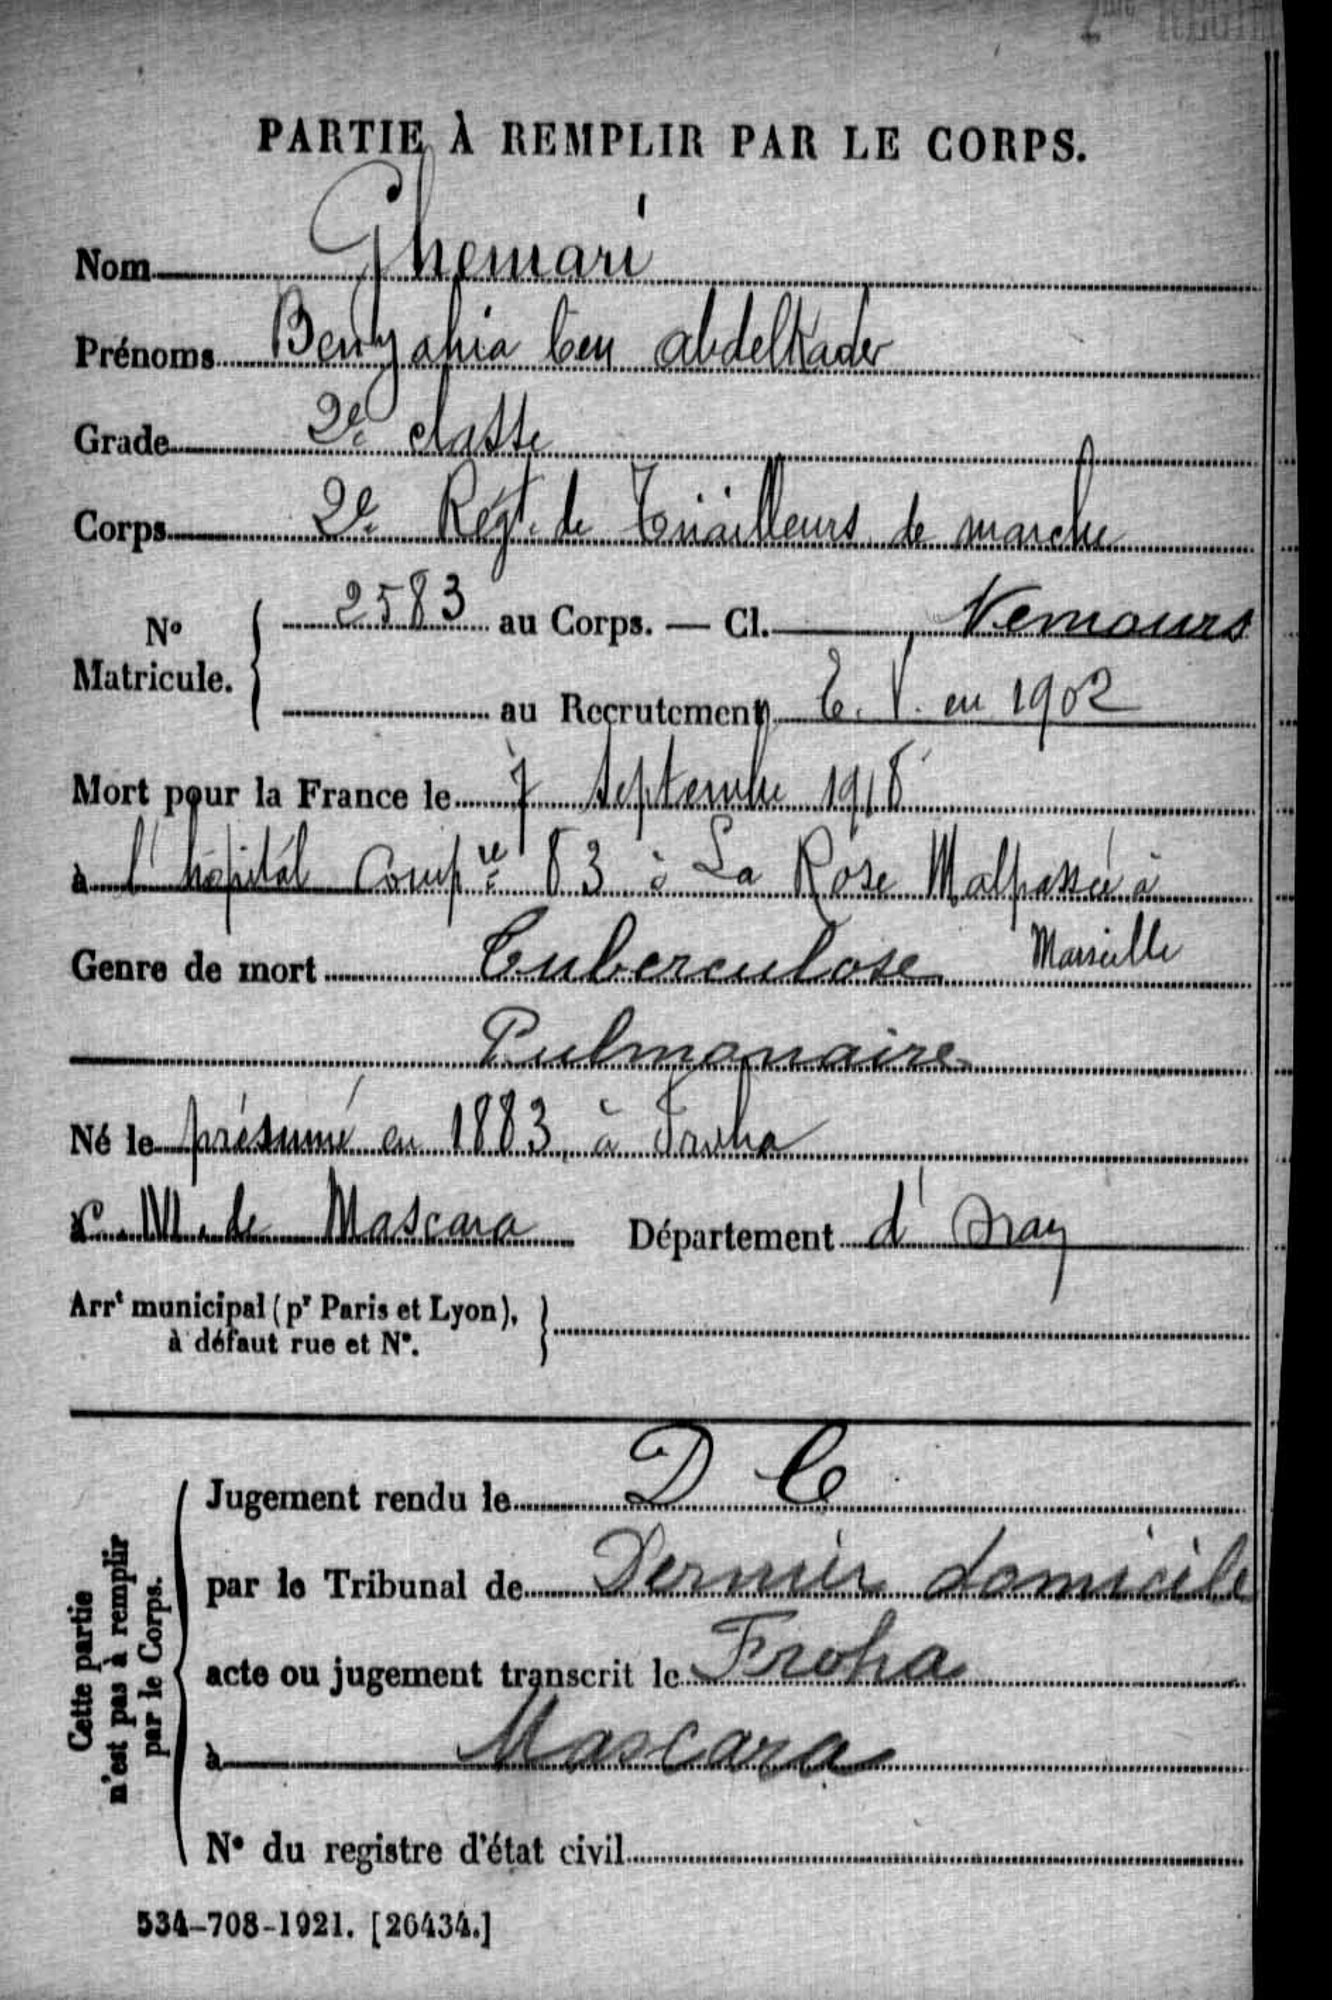 2me RÉGIM
PARTIE À REMPLIR PAR LE CORPS.
Nom Ghemari
Prénoms Benyahia ben abdelkader
Grade 2e classe
Corps 2e Régt. de Tirailleurs de marche
No Matricule. { 2583 au Corps. — Cl. Nemours
au Recrutement E. V. en 1902
Mort pour la France le 7 Septembre 1918
à l'hôpital Compre 83 à La Rose Malpassée à
Marseille
Genre de mort Tuberculose
Pulmonaire
Né le présumé en 1883 à Froha
C. M. de Mascara Département d'Oran
Arrt municipal (pr Paris et Lyon), }
à défaut rue et No.
Cette partie
n'est pas à remplir
par le Corps.
Jugement rendu le D C
par le Tribunal de Dernier domicile
acte ou jugement transcrit le Froha
à Mascara
No du registre d'état civil
534-708-1921. [26434.]